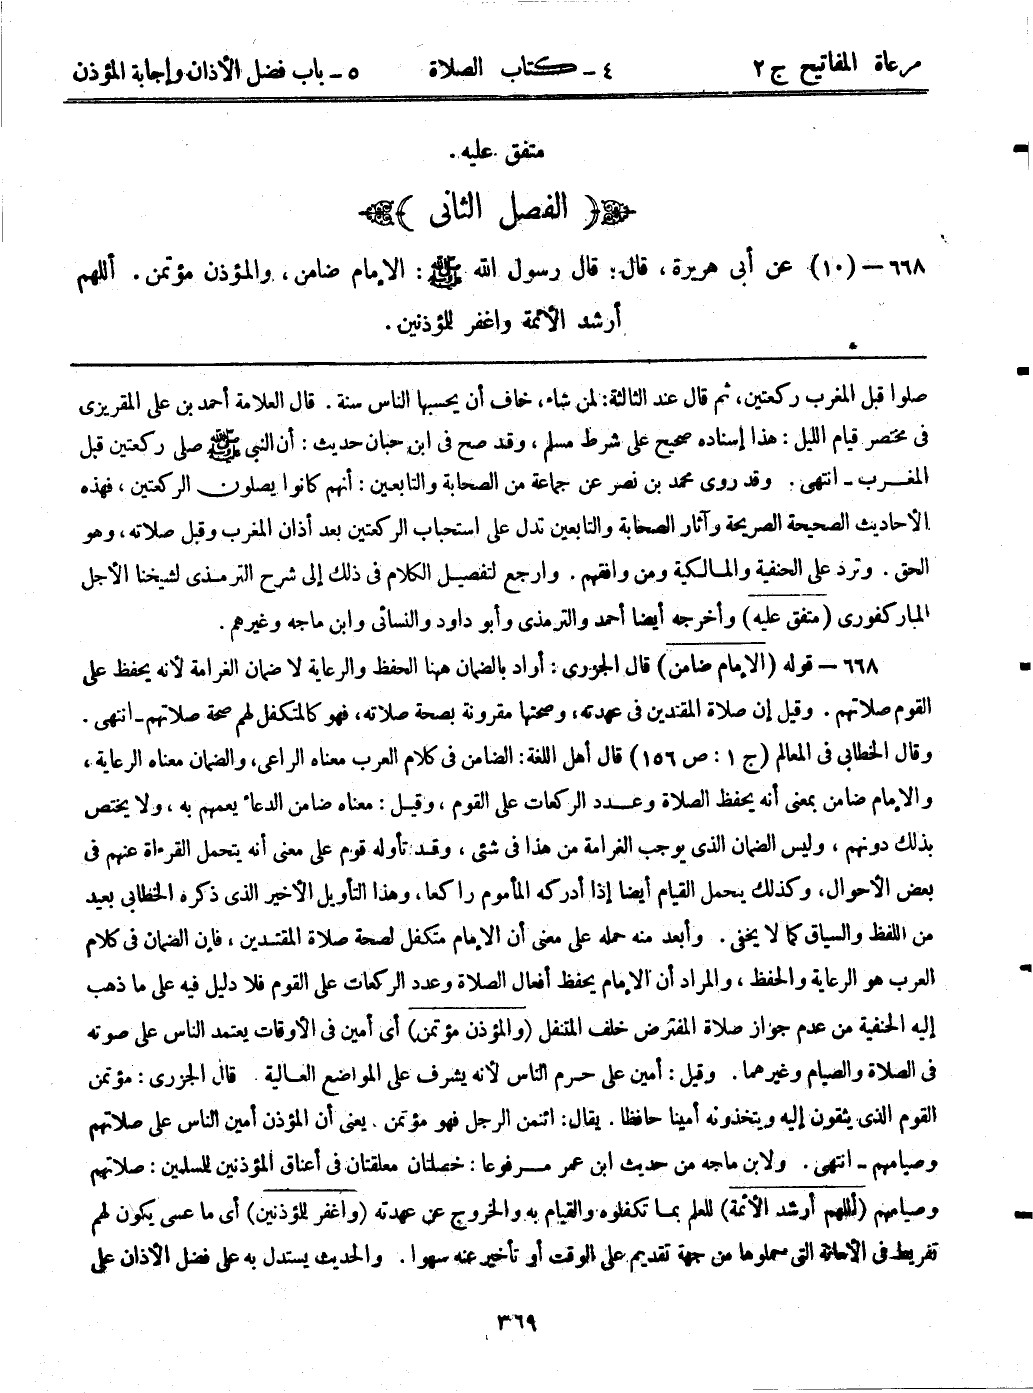 مرعاة المفاتيح ج ٢ ٤ - كتاب الصلاة ٥ - باب فضل الأذان وإجابة المؤذن
متفق عليه .
﴿ الفصل الثانى ﴾
٦٦٨ – (١٠) عن أبى هريرة ، قال: قال رسول الله ﷺ : الإمام ضامن ، والمؤذن مؤتمن . أللهم
أرشد الأئمة واغفر للؤذنين .
صلوا قبل المغرب ركعتين، ثم قال عند الثالثة: لمن شاء، خاف أن يحسبها الناس سنة . قال العلامة أحمد بن على المقريزى
فى مختصر قيام الليل : هذا إسناده صحيح على شرط مسلم ، وقد صح فى ابن حبان حديث : أن النبى ﷺ صلى ركعتين قبل
المغرب - انتهى . وقد روى محمد بن نصر عن جماعة من الصحابة والتابعين : أنهم كانوا يصلون الركعتين ، فهذه
الأحاديث الصحيحة الصريحة وآثار الصحابة والتابعين تدل على استحباب الركعتين بعد أذان المغرب وقبل صلاته ، وهو
الحق . وترد على الحنفية والمالكية ومن وافقهم . وارجع لتفصيل الكلام فى ذلك إلى شرح الترمذى لشيخنا الأجل
المباركفورى (متفق عليه) وأخرجه أيضا أحمد والترمذى وأبو داود والنسائى وابن ماجه وغيرهم .
٦٦٨ – قوله (الإمام ضامن) قال الجزرى : أراد بالضمان ههنا الحفظ والرعاية لا ضمان الغرامة لأنه يحفظ على
القوم صلاتهم . وقيل إن صلاة المقتدين فى عهدته، وصحتها مقرونة بصحة صلاته، فهو كالمتكفل لهم صحة صلاتهم-انتهى .
وقال الخطابى فى المعالم (ج ١ : ص ١٥٦) قال أهل اللغة: الضامن فى كلام العرب معناه الراعى، والضمان معناه الرعاية ،
والإمام ضامن بمعنى أنه يحفظ الصلاة وعدد الركعات على القوم ، وقيل : معناه ضامن الدعاء يعمهم به ، ولا يختص
بذلك دونهم ، وليس الضمان الذى يوجب الغرامة من هذا فى شئى ، وقد تأوله قوم على معنى أنه يتحمل القرءاة عنهم فى
بعض الأحوال، وكذلك يحمل القيام أيضا إذا أدركه المأموم راكعا، وهذا التأويل الأخير الذى ذكره الخطابى بعيد
من اللفظ والسياق كما لا يخفى . وأبعد منه حمله على معنى أن الإمام متكفل لصحة صلاة المقتدين ، فإن الضمان فى كلام
العرب هو الرعاية والحفظ ، والمراد أن الإمام يحفظ أفعال الصلاة وعدد الركعات على القوم فلا دليل فيه على ما ذهب
إليه الحنفية من عدم جواز صلاة المفترض خلف المتنفل (والمؤذن مؤتمن) أى أمين فى الأوقات يعتمد الناس على صوته
فى الصلاة والصيام وغيرهما . وقيل : أمين على حرم الناس لأنه يشرف على المواضع العالية . قال الجزرى : مؤتمن
القوم الذى يثقون إليه ويتخذونه أمينا حافظا . يقال: ائتمن الرجل فهو مؤتمن . يعنى أن المؤذن أمين الناس على صلاتهم
وصيامهم - انتهى . ولابن ماجه من حديث ابن عمر مرفوعا : خصلتان معلقتان فى أعناق المؤذنين للسلمين : صلاتهم
وصيامهم (أللهم أرشد الأئمة) للعلم بما تكفلوه والقيام به والخروج عن عهدته (واغفر للؤذنين) أى ما عسى يكون لهم
تفريط فى الأمانة التى حملوها من جهة تقديم على الوقت أو تأخير عنه سهوا . والحديث يستدل به على فضل الأذان على
٣٦٩